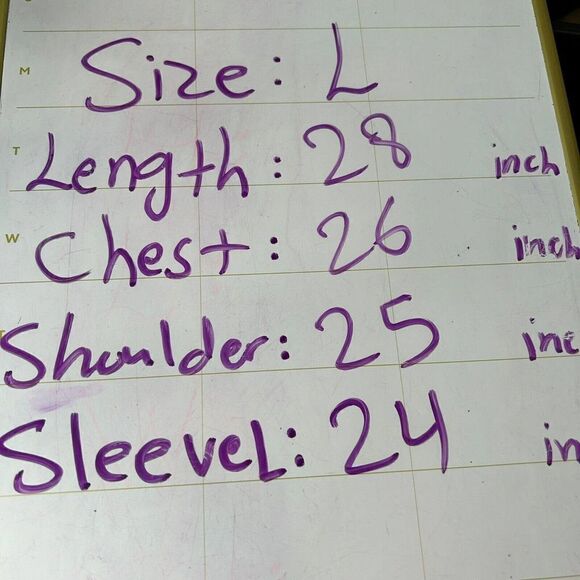 M Size: L
T Length: 28 inch
W Chest: 26 inch
T Shoulder: 25 inc
SleeveL: 24 in